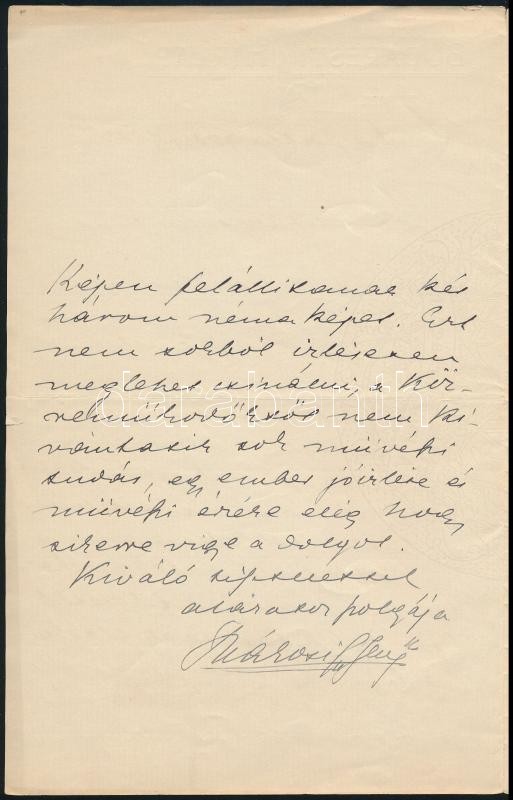 Képen felállitanae két
három néma képet. Ezt
nem sorból izlésesen
meglehet csinálni, a Köz-
reműködőktöl nem ki-
vántatik sok művészi
tudás, egy ember jóizlése és
művészi érzéke elég hogy
sikerre vigye a dolgot.
Kiváló tisztelettel
alázatos szolgája
Rákosi Jenő
darabanth